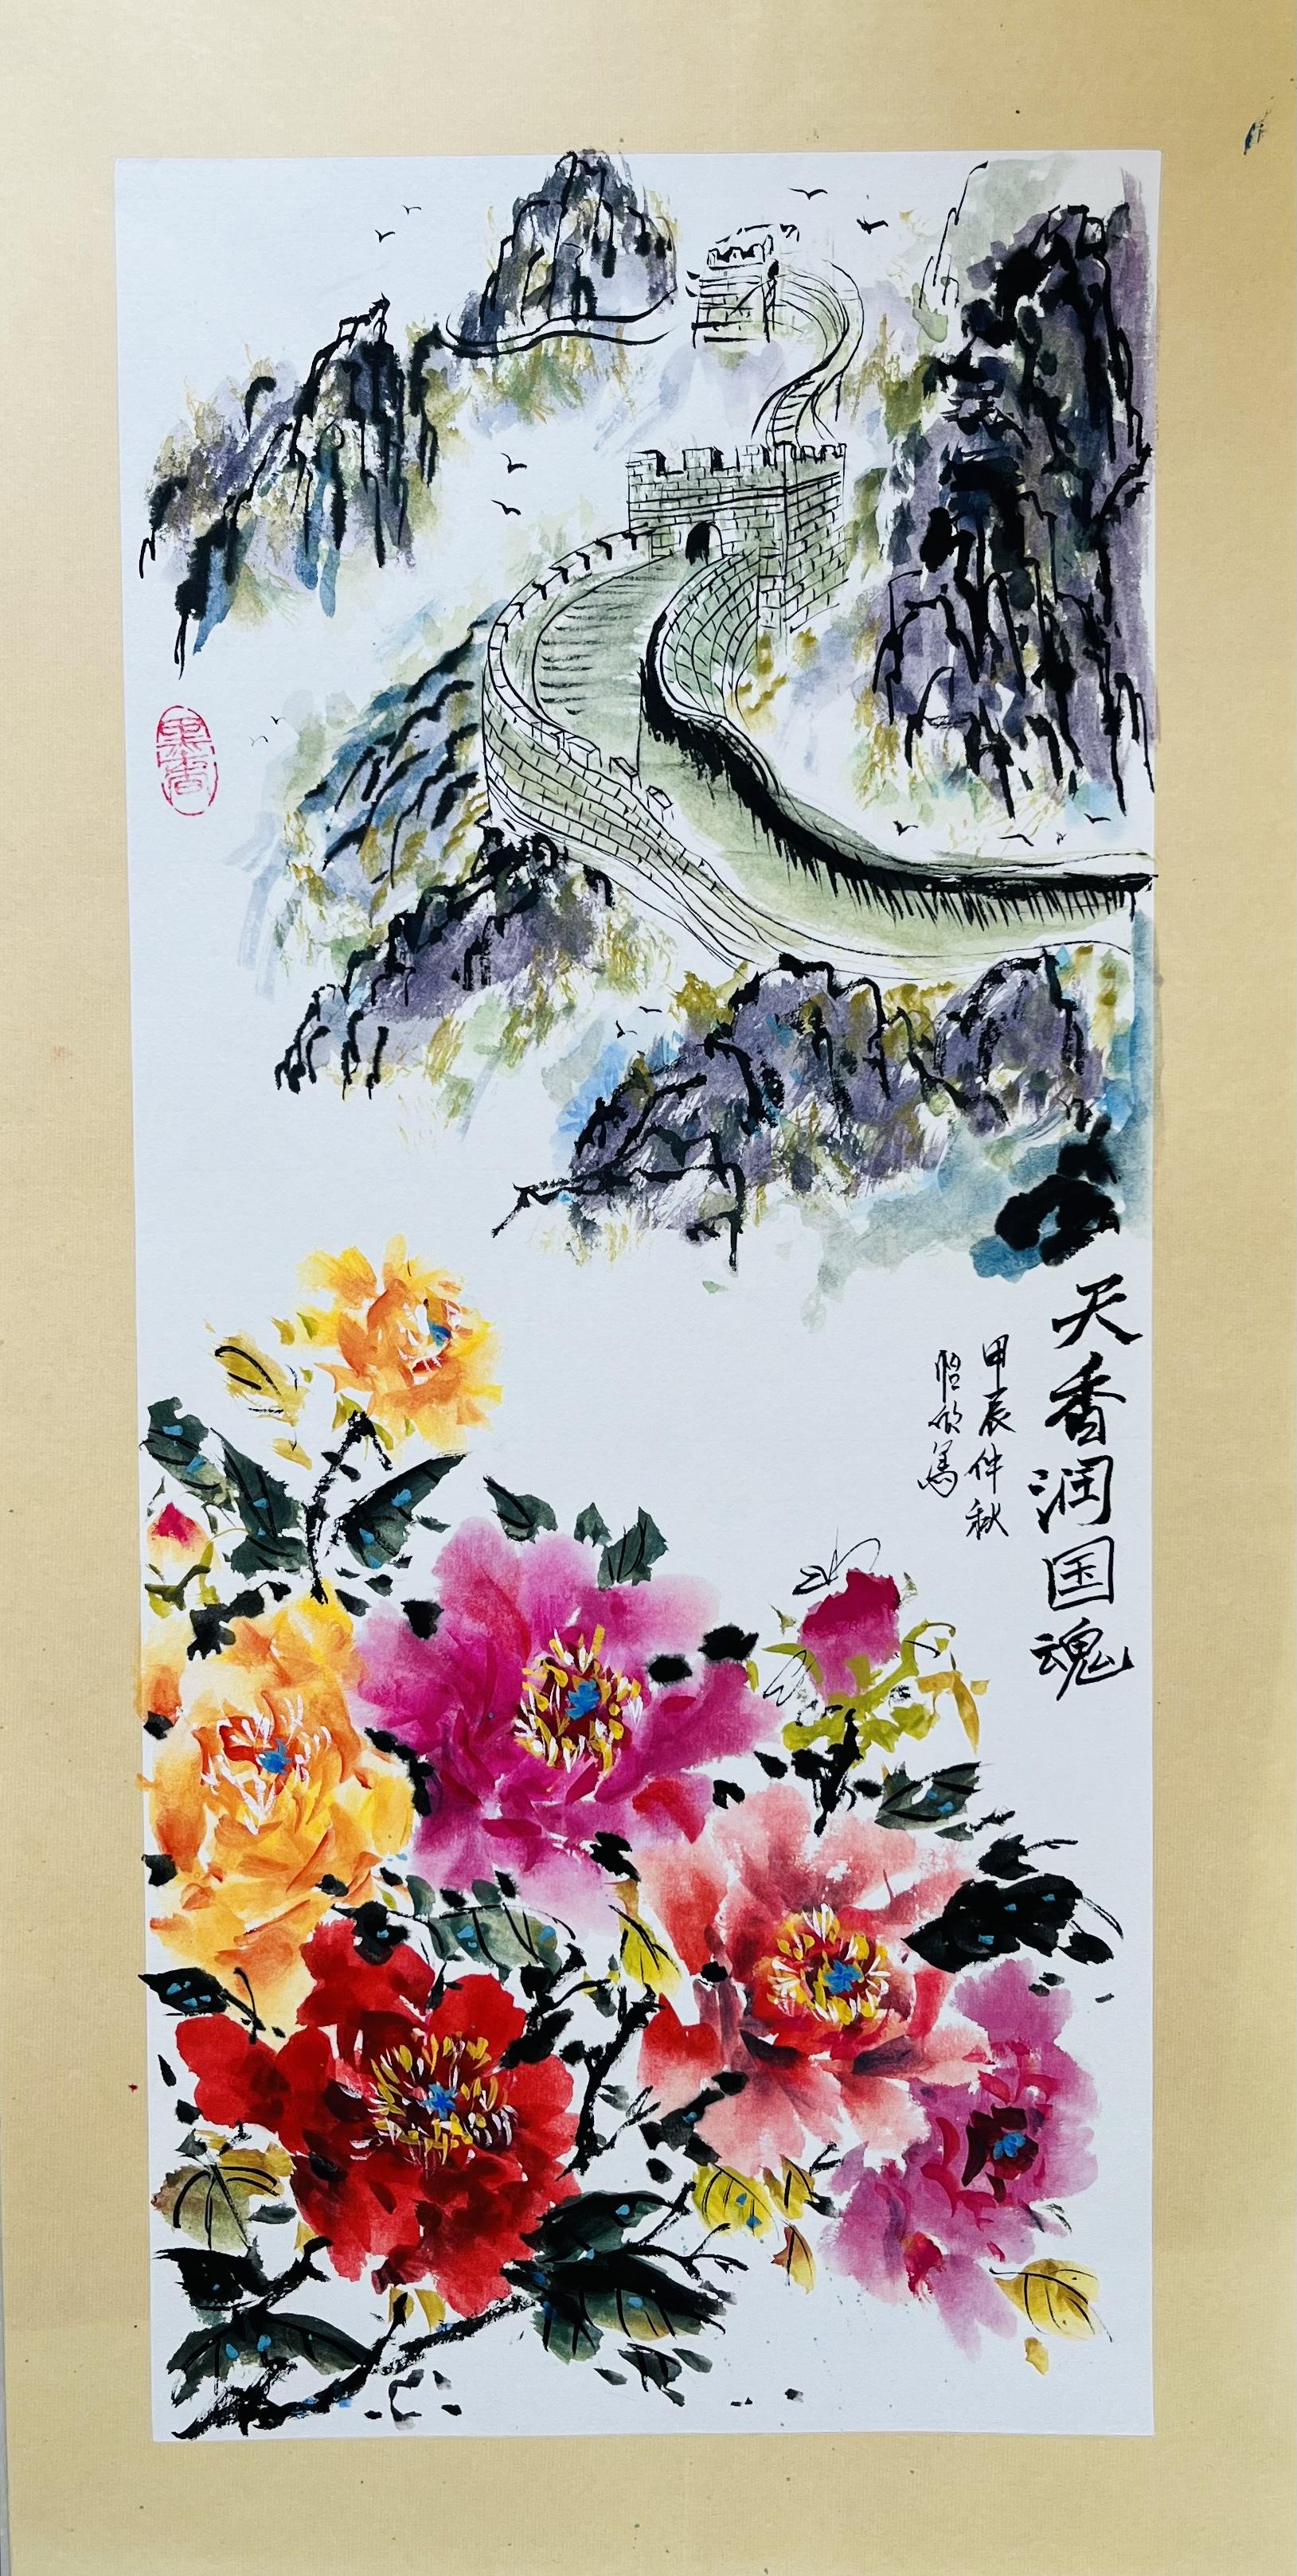 天香润国魂
甲辰仲秋
怡欣写
墨香